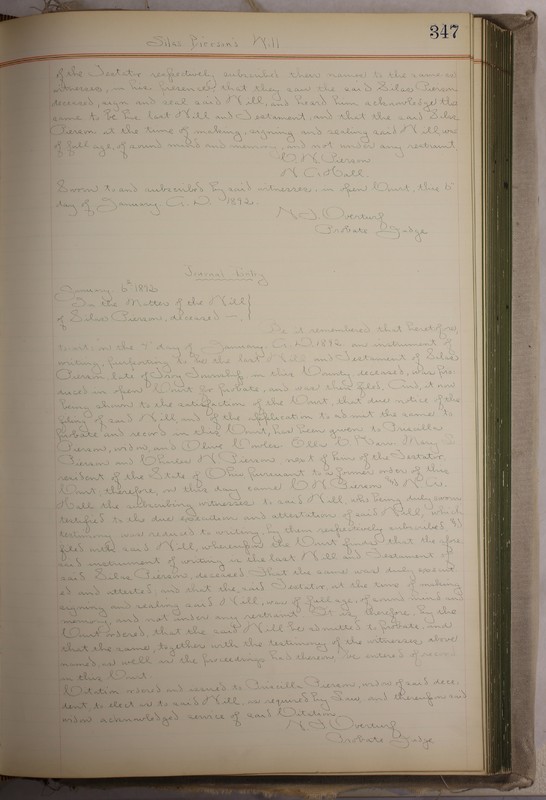 347
Silas Pierson's Will
of the Testator respectively subscribed their names to the same as
witnesses, in his presence, that they saw the said Silas Pierson
deceased, sign and seal said Will, and heard him acknowledge the
same to be his last Will and Testament, and that the said Silas
Pierson at the time of making, signing and sealing said Will, was
of full age, of sound mind and memory, and not under any restraint.
C. N. Pierson
N. C. Hall
Sworn to and subscribed by said witnesses, in open Court, this 6
day of January A. D. 1892.
N. J. Overturf
Probate Judge
Journal Entry
January 6th 1892
In the Matter of the Will
of Silas Pierson, deceased
Be it remembered that heretofore,
to wit: on the day of January, A. D. 1892 an instrument of
writing, purporting to be the last Will and Testament of Silas
Pierson, late of Troy Township, in this County, deceased, was pro-
duced in open Court for probate, and was then filed. And, it now
being shown to the satisfaction of the Court, that due notice of the
filing of said Will, and of the application to admit the same to
probate and record in this Court, has been given to Priscilla
Pierson, widow, and Olive Mary
Pierson and Charles N. Pierson next of kin of the Testator,
resident of the State of Ohio pursuant to a former order of this
Court, therefore, on this day came C. N. Pierson & N. C.
Hall the subscribing witnesses to said Will, who being duly sworn
testified to the due execution and attestation of said Will, which
testimony was reduced to writing, by them respectively subscribed &
filed with said Will, whereupon the Court finds that the afore-
said instrument of writing is the last Will and Testament of
said Silas Pierson, deceased. That the same was duly execut-
ed and attested, and that the said Testator, at the time of making
signing and sealing said Will, was of full age, of sound mind and
memory and not under any restraint. It is, therefore, by the
Court ordered, that the said Will be admitted to probate, and
that the same, together with the testimony of the witnesses above
named, as well as the proceedings had therein, be entered of record
in this Court.
Citation ordered and issued to Priscilla Pierson, widow of said dece-
dent to elect as to said Will, as required by Law, and thereupon said
widow acknowledged service of said Citation.
N. J. Overturf
Probate Judge